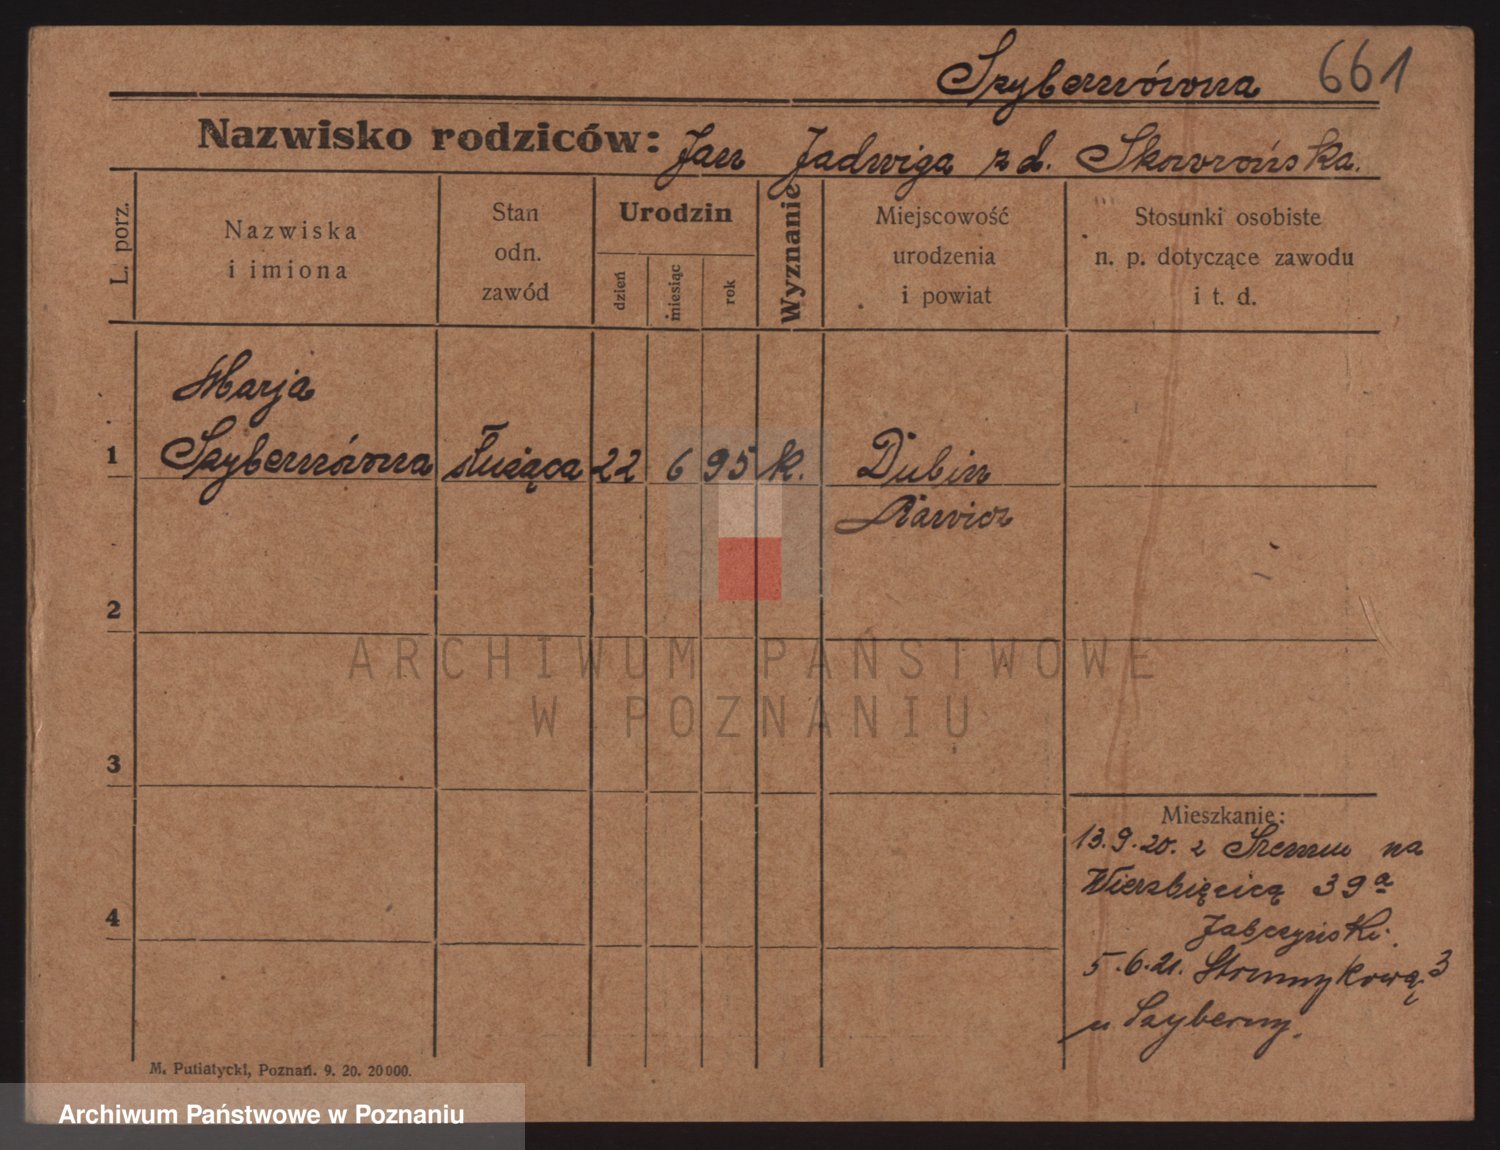 Szybernówna 661
Nazwisko rodziców: Jan Jadwiga z d. Skowrońska.
L. porz.
Nazwiska
i imiona
Stan
odn.
zawód
Urodzin
dzień
miesiąc
rok
Wyznanie
Miejscowość
urodzenia
i powiat
Stosunki osobiste
n. p. dotyczące zawodu
i t. d.
Marja
1 Szybernówna służąca 22 6 95 k. Dubin
Rawicz
2
ARCHIWUM PAŃSTWOWE
W POZNANIU
3
Mieszkanie:
13.9.20. z Szremu na
Wierzbięcicą 39a
Jabczyński.
4
5.6.21. Strumykową 3
u Szyberny.
M. Putiatycki, Poznań. 9. 20. 20000.
Archiwum Państwowe w Poznaniu